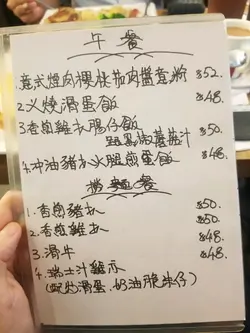 午餐
1.意式燴肉粿枝茄肉醬意粉 $52.
2.义燒滑蛋飯 $48.
3.香茜雞扒腸仔飯 $50.
蘑菇汁
4.沖油豬扒火腿煎蛋飯 $48.
撈麵餐
1.香茜豬扒 $50.
2.香茜雞扒 $50.
3.滑牛 $48.
4.瑞士汁雞 $48.
滑蛋、奶油脆豬仔)